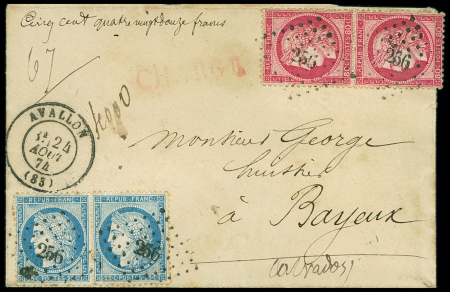 Cinq cent quatre vingt douze francs
67
CHARGÉ
256 256
AVALLON
24
AOUT
74
(83)
Monsieur George
huissier
à Bayeux
(Calvados)
REPUB. FRANC. REPUB. FRANC.
256 256